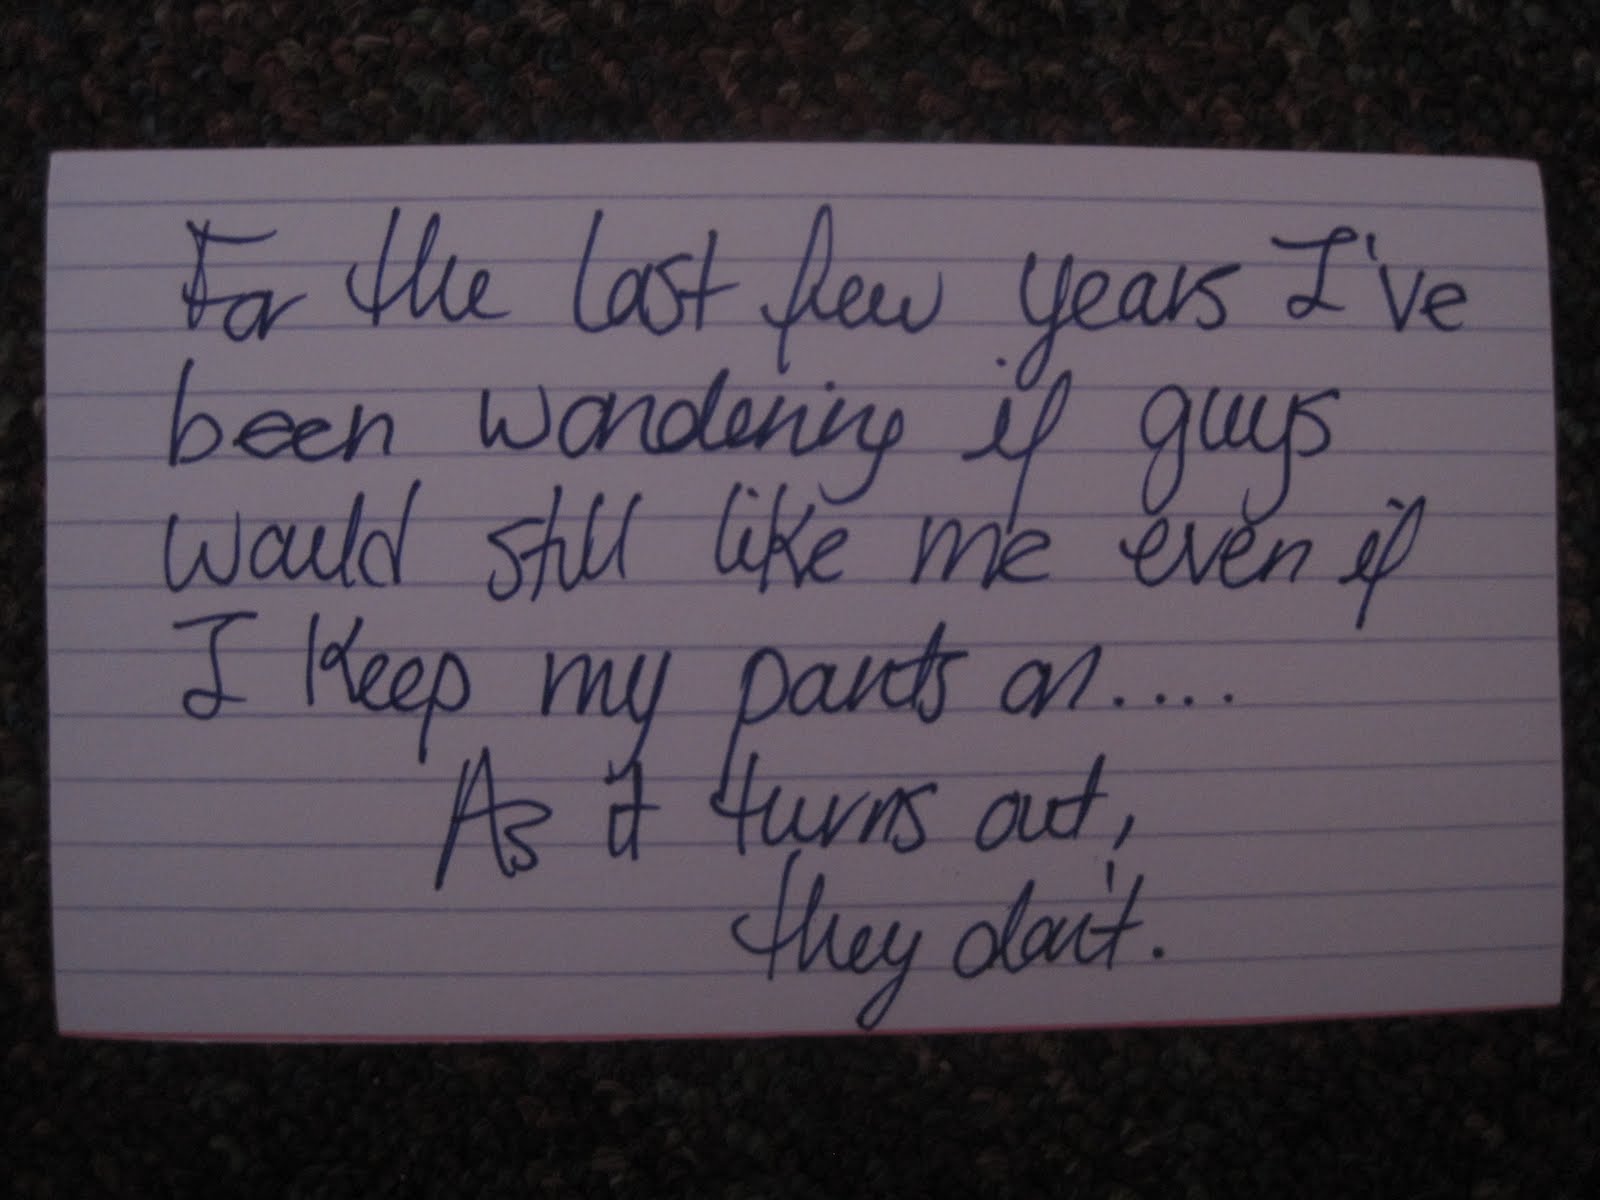 For the last few years I've
been wondering if guys
would still like me even if
I keep my pants on....
As it turns out,
they don't.